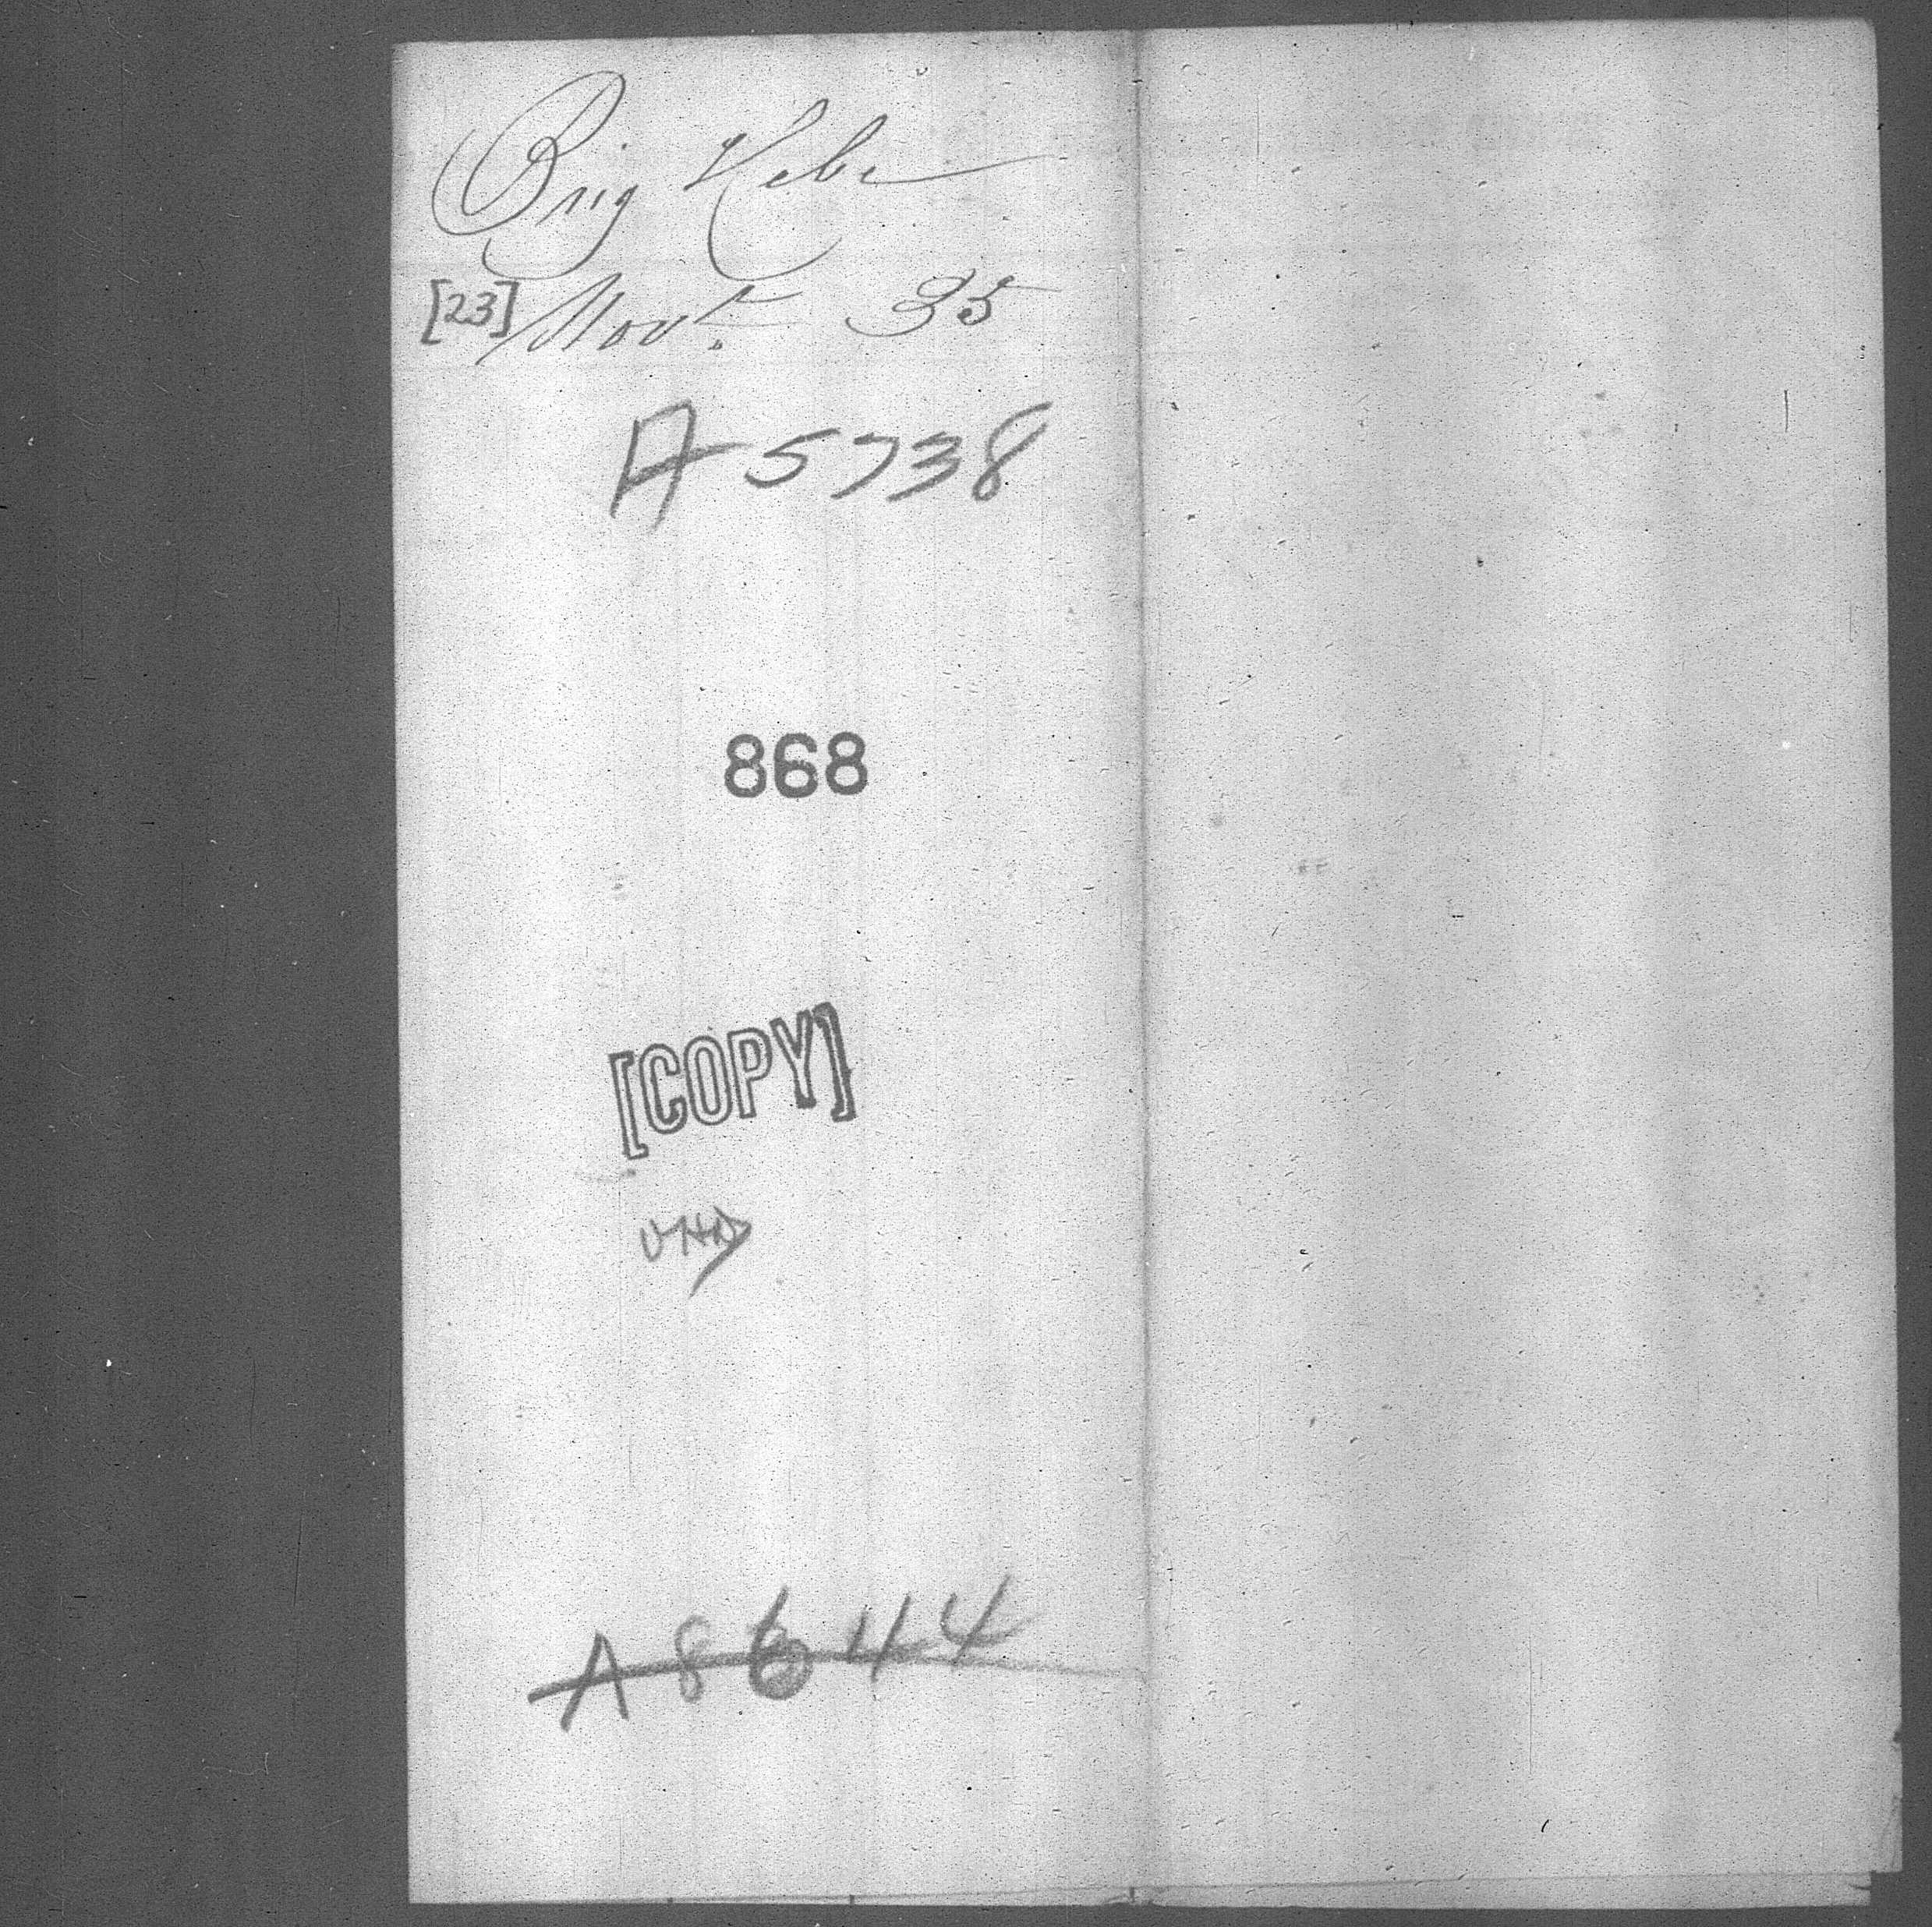 Brig Hebe
[23] Novr. 35
A 5738
868
[COPY]
A 8644